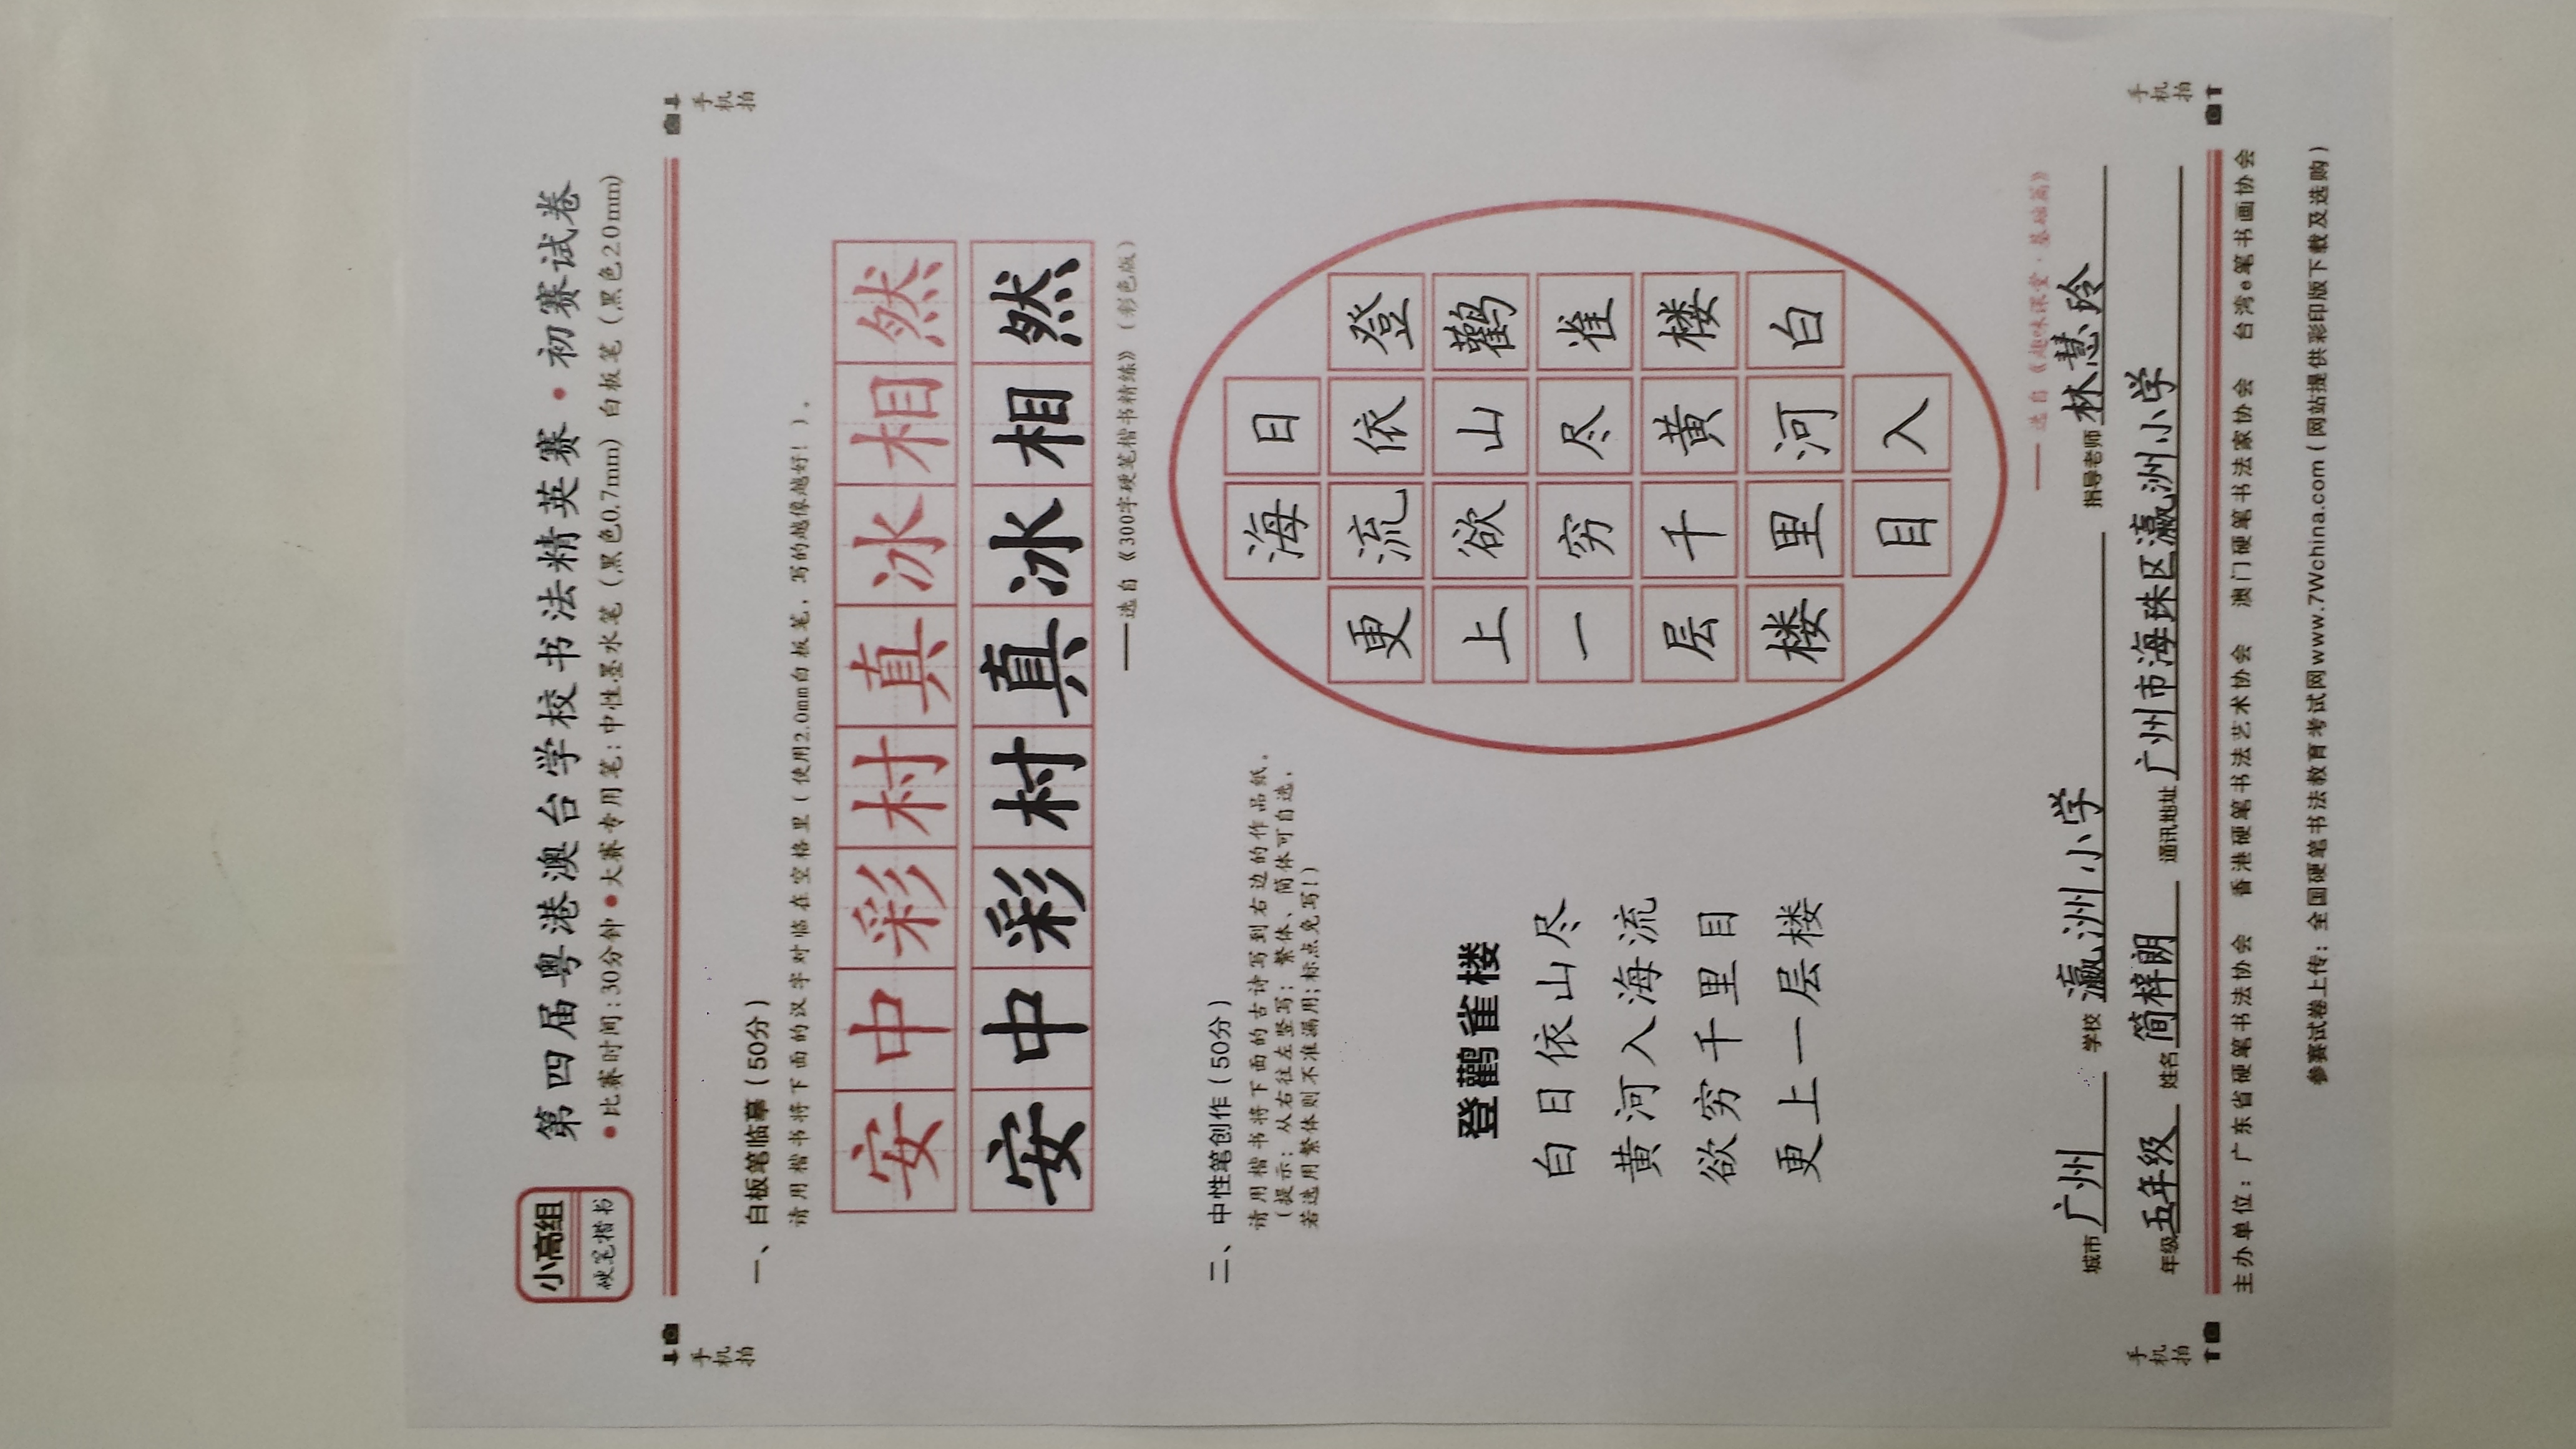 小高组
硬笔楷书
第四届粤港澳台学校书法精英赛•初赛试卷
●比赛时间:30分钟●大赛专用笔:中性墨水笔(黑色0.7mm)白板笔(黑色2.0mm)
手机拍
手机拍
一、白板笔临摹(50分)
请用楷书将下面的汉字对临在空格里(使用2.0mm白板笔,写的越像越好!)。
安中彩村真冰相然
安中彩村真冰相然
——选自《300字硬笔楷书精练》(彩色版)
二、中性笔创作(50分)
请用楷书将下面的古诗写到右边的作品纸。
(提示:从右往左竖写;繁体、简体可自选,
若选用繁体则不准漏用;标点免写!)
登鹳雀楼
白日依山尽
黄河入海流
欲穷千里目
更上一层楼
登鹳雀楼白
日依山尽黄河入
海流欲穷千里目
更上一层楼
——选自《趣味课堂·基础篇》
城市 广州 学校 瀛洲小学 指导老师 林慧玲
年级 五年级 姓名 简梓朗 通讯地址 广州市海珠区瀛洲小学
手机拍
手机拍
主办单位:广东省硬笔书法协会 香港硬笔书法艺术协会 澳门硬笔书法家协会 台湾e笔书画协会
参赛试卷上传:全国硬笔书法教育考试网www.7Wchina.com(网站提供彩印版下载及选购)